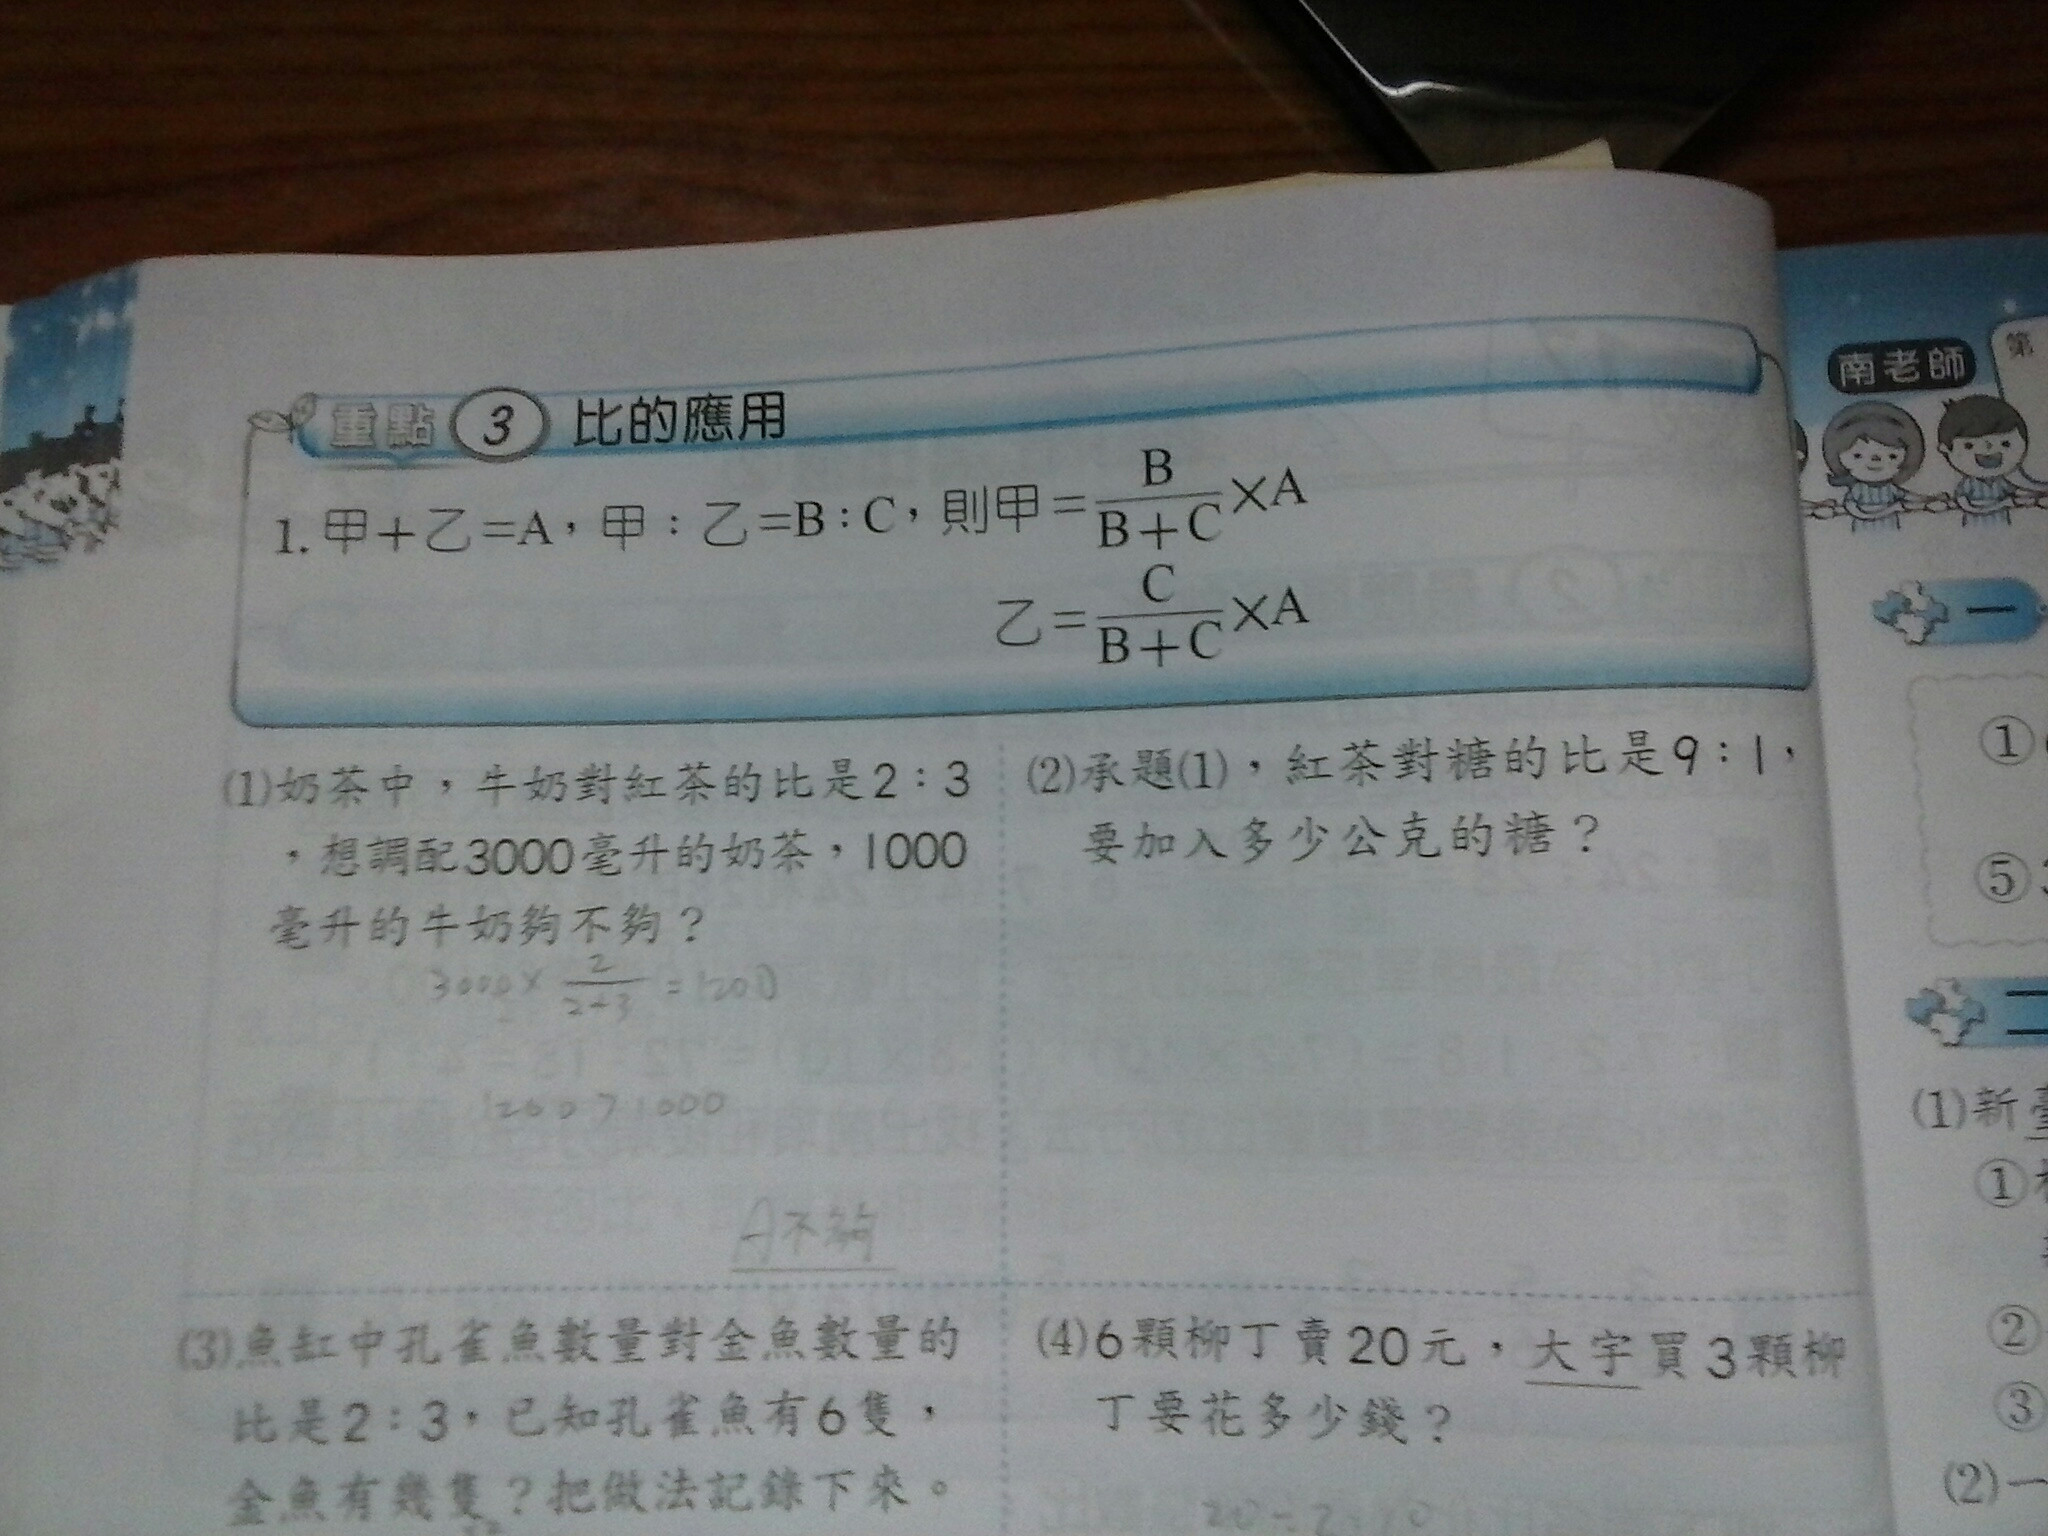 重點 3 比的應用
1. 甲+乙=A，甲：乙=B：C，則甲=B/(B+C)×A
乙=C/(B+C)×A
(1)奶茶中，牛奶對紅茶的比是2：3
，想調配3000毫升的奶茶，1000
毫升的牛奶夠不夠？
3000× 2/(2+3) =1200
1200>1000
A不夠
(2)承題(1)，紅茶對糖的比是9：1，
要加入多少公克的糖？
(3)魚缸中孔雀魚數量對金魚數量的
比是2：3，已知孔雀魚有6隻，
金魚有幾隻？把做法記錄下來。
(4)6顆柳丁賣20元，大宇買3顆柳
丁要花多少錢？
20÷2=10
南老師
第
一
①
⑤
二
(1)新臺
①
②
③
(2)一